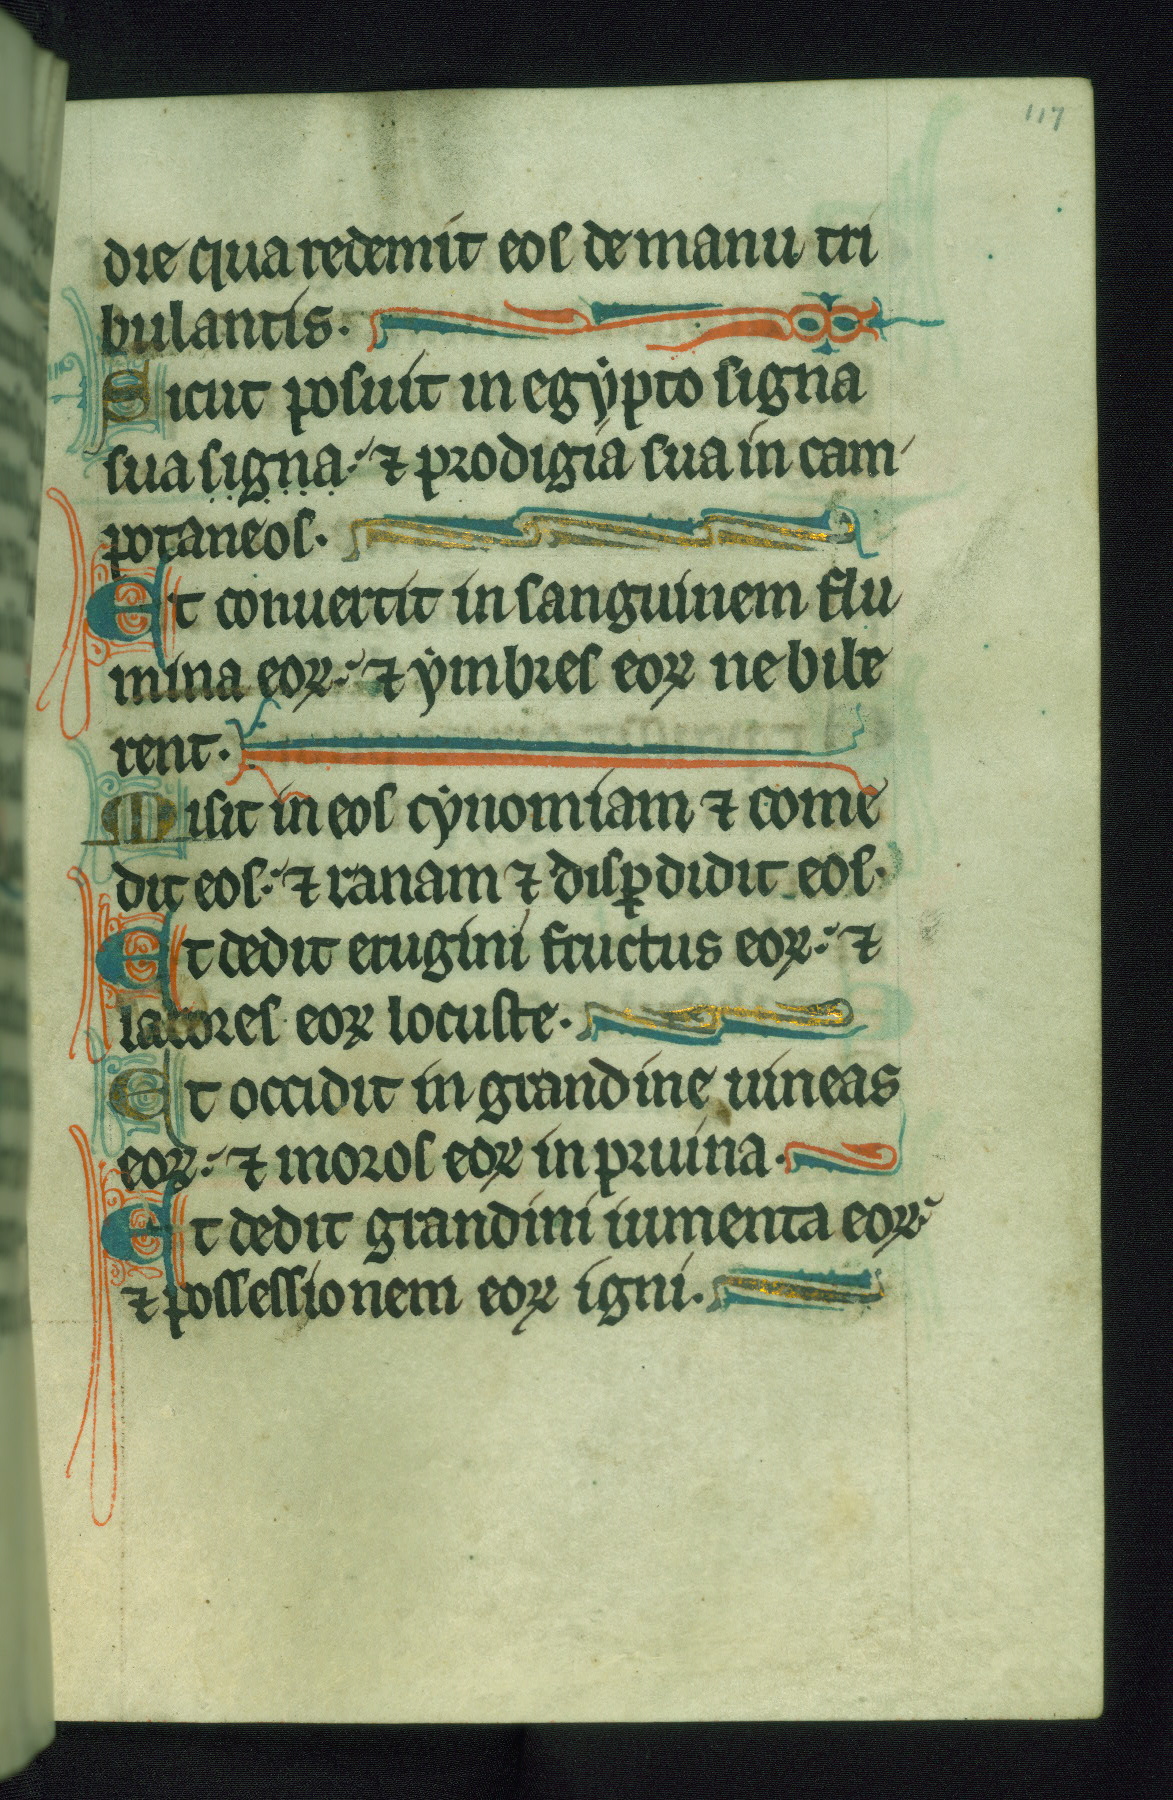 117
die qua redemit eos de manu tri
bulantis.
Sicut posuit in egẏpto signa
sua signa: ⁊ prodigia sua in cam
po taneos.
Et conuertit in sanguinem flu
mina eoꝝ: ⁊ ẏmbres eoꝝ ne bibe
rent.
Misit in eos cẏnomiam ⁊ come
dit eos: ⁊ ranam ⁊ disꝑdidit eos.
Et dedit erugini fructus eoꝝ: ⁊
labores eoꝝ locuste.
Et occidit in grandine uineas
eoꝝ: ⁊ moros eoꝝ in pruina.
Et dedit grandini iumenta eoꝝ:
⁊ possessionem eoꝝ igni.